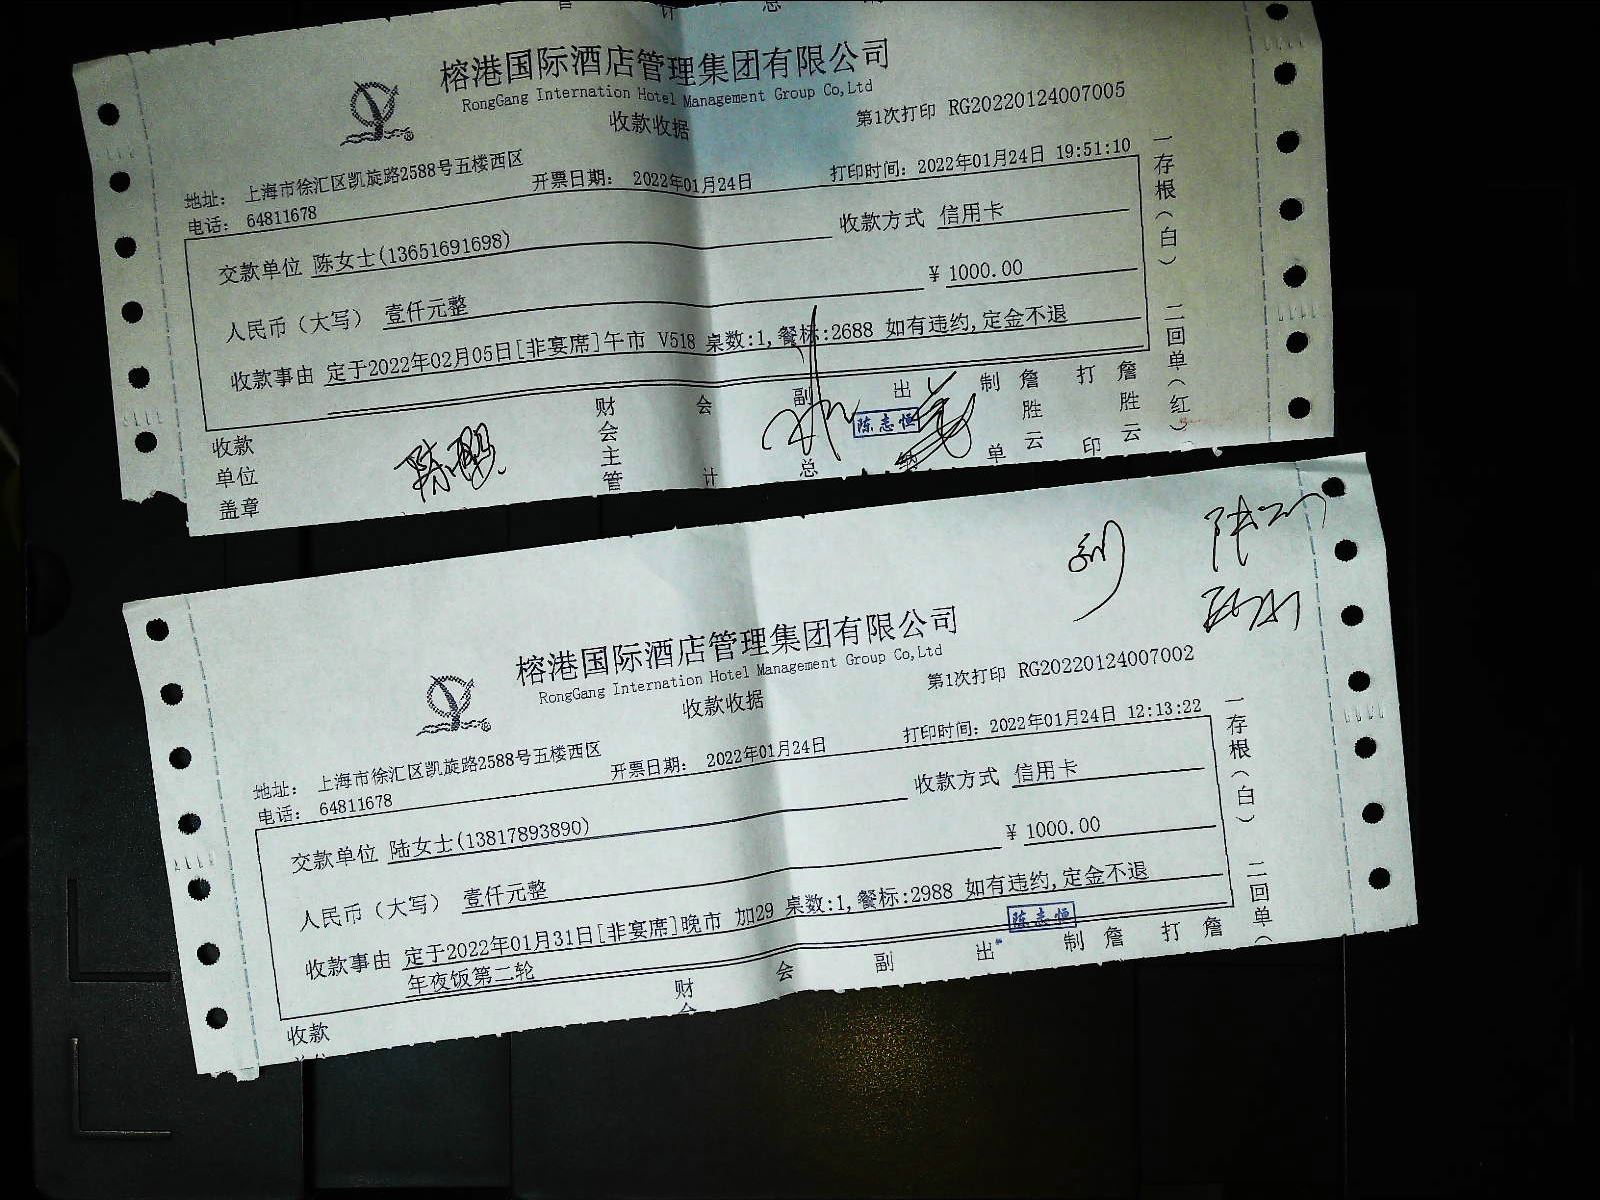 榕港国际酒店管理集团有限公司
RongGang Internation Hotel Management Group Co,Ltd
收款收据
第1次打印 RG20220124007005
地址： 上海市徐汇区凯旋路2588号五楼西区
电话： 64811678
开票日期： 2022年01月24日
打印时间：2022年01月24日 19:51:10
交款单位 陈女士(13651691698)
收款方式 信用卡
人民币（大写） 壹仟元整
¥ 1000.00
收款事由 定于2022年02月05日[非宴席]午市 V518 桌数:1,餐标:2688 如有违约,定金不退
收款单位盖章
财会主管
会计
副总
陈志恒
出
制单 詹胜云
打印 詹胜云
一存根（白） 二回单（红）
榕港国际酒店管理集团有限公司
RongGang Internation Hotel Management Group Co,Ltd
收款收据
第1次打印 RG20220124007002
地址： 上海市徐汇区凯旋路2588号五楼西区
电话： 64811678
开票日期： 2022年01月24日
打印时间：2022年01月24日 12:13:22
交款单位 陆女士(13817893890)
收款方式 信用卡
人民币（大写） 壹仟元整
¥ 1000.00
收款事由 定于2022年01月31日[非宴席]晚市 加29 桌数:1,餐标:2988 如有违约,定金不退
年夜饭第二轮
陈志恒
收款
财
会
副
出
制 詹
打 詹
一存根（白） 二回单（